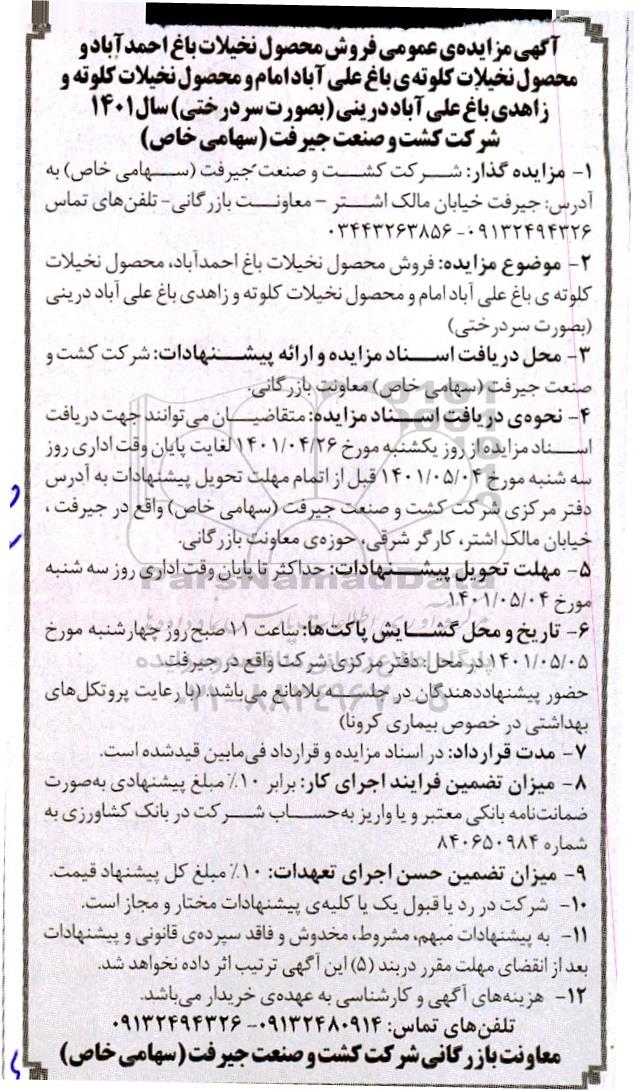 آگهی مزایده‌ی عمومی فروش محصول نخیلات باغ احمدآباد و
محصول نخیلات کلوته‌ی باغ علی آباد امام و محصول نخیلات کلوته و
زاهدی باغ علی آباد درینی (بصورت سردرختی) سال ۱۴۰۱
شرکت کشت و صنعت جیرفت (سهامی خاص)
۱- مزایده گذار: شرکت کشت و صنعت جیرفت (سهامی خاص) به
آدرس: جیرفت خیابان مالک اشتر - معاونت بازرگانی- تلفن‌های تماس
۰۹۱۳۲۴۹۴۳۲۶- ۰۳۴۴۳۲۶۳۸۵۶
۲- موضوع مزایده: فروش محصول نخیلات باغ احمدآباد، محصول نخیلات
کلوته ی باغ علی آباد امام و محصول نخیلات کلوته و زاهدی باغ علی آباد درینی
(بصورت سردرختی)
۳- محل دریافت اسناد مزایده و ارائه پیشنهادات: شرکت کشت و
صنعت جیرفت (سهامی خاص) معاونت بازرگانی.
۴- نحوه‌ی دریافت اسناد مزایده: متقاضیان می‌توانند جهت دریافت
اسناد مزایده از روز یکشنبه مورخ ۱۴۰۱/۰۴/۲۶ لغایت پایان وقت اداری روز
سه شنبه مورخ ۱۴۰۱/۰۵/۰۴ قبل از اتمام مهلت تحویل پیشنهادات به آدرس
دفتر مرکزی شرکت کشت و صنعت جیرفت (سهامی خاص) واقع در جیرفت ،
خیابان مالک اشتر، کارگر شرقی، حوزه‌ی معاونت بازرگانی.
۵- مهلت تحویل پیشنهادات: حداکثر تا پایان وقت اداری روز سه شنبه
مورخ ۱۴۰۱/۰۵/۰۴
۶- تاریخ و محل گشایش پاکت‌ها: ساعت ۱۱ صبح روز چهارشنبه مورخ
۱۴۰۱/۰۵/۰۵ در محل: دفتر مرکزی شرکت واقع در جیرفت.
حضور پیشنهاددهندگان در جلسه بلامانع می‌باشد. (با رعایت پروتکل‌های
بهداشتی در خصوص بیماری کرونا)
۷- مدت قرارداد: در اسناد مزایده و قرارداد فی‌مابین قیدشده است.
۸- میزان تضمین فرایند اجرای کار: برابر ۱۰٪ مبلغ پیشنهادی به‌صورت
ضمانت‌نامه بانکی معتبر و یا واریز به‌حساب شرکت در بانک کشاورزی به
شماره ۸۴۰۶۵۰۹۸۴
۹- میزان تضمین حسن اجرای تعهدات: ۱۰٪ مبلغ کل پیشنهاد قیمت.
۱۰- شرکت در رد یا قبول یک یا کلیه‌ی پیشنهادات مختار و مجاز است.
۱۱- به پیشنهادات مبهم، مشروط، مخدوش و فاقد سپرده‌ی قانونی و پیشنهادات
بعد از انقضای مهلت مقرر دربند (۵) این آگهی ترتیب اثر داده نخواهد شد.
۱۲- هزینه‌های آگهی و کارشناسی به عهده‌ی خریدار می‌باشد.
تلفن‌های تماس: ۰۹۱۳۲۴۸۰۹۱۴- ۰۹۱۳۲۴۹۴۳۲۶
معاونت بازرگانی شرکت کشت و صنعت جیرفت (سهامی خاص)
ParsNamadData